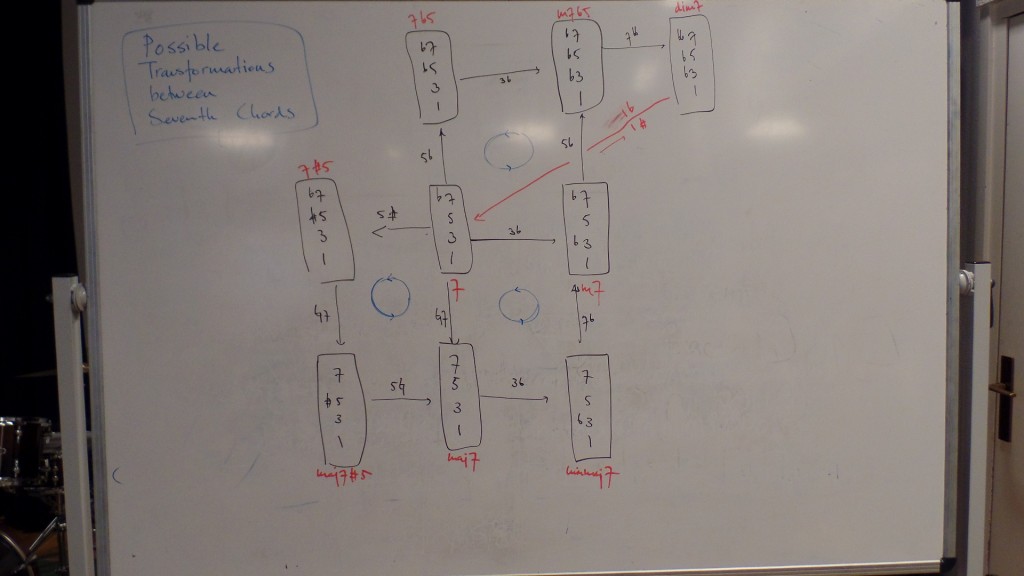 Possible
Transformations
between
Seventh Chords
7b5
b7
b5
3
1
3b
m7b5
b7
b5
b3
1
7b
dim7
b7
b5
b3
1
1b
1#
5b
5b
7#5
b7
#5
3
1
5#
b7
5
3
1
7
3b
b7
5
b3
1
m7
♮7
♮7
7b
7
#5
3
1
maj7#5
5♮
7
5
3
1
maj7
3b
7
5
b3
1
minmaj7